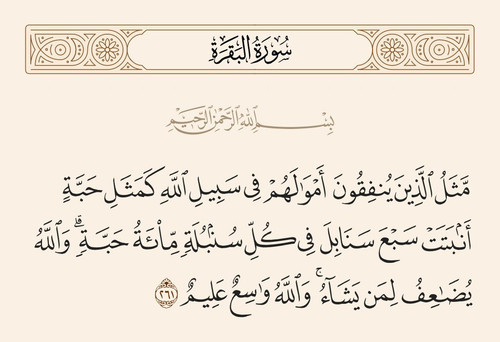 سُورَةُ الْبَقَرَةِ
بِسْمِ ٱللَّهِ ٱلرَّحْمَٰنِ ٱلرَّحِيمِ
مَّثَلُ ٱلَّذِينَ يُنفِقُونَ أَمْوَٰلَهُمْ فِى سَبِيلِ ٱللَّهِ كَمَثَلِ حَبَّةٍ
أَنۢبَتَتْ سَبْعَ سَنَابِلَ فِى كُلِّ سُنۢبُلَةٍ مِّا۟ئَةُ حَبَّةٍ ۗ وَٱللَّهُ
يُضَٰعِفُ لِمَن يَشَآءُ ۚ وَٱللَّهُ وَٰسِعٌ عَلِيمٌ ٢٦١